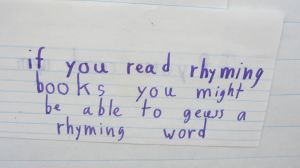 if you read rhyming
books you might
be able to geuss a
rhyming word